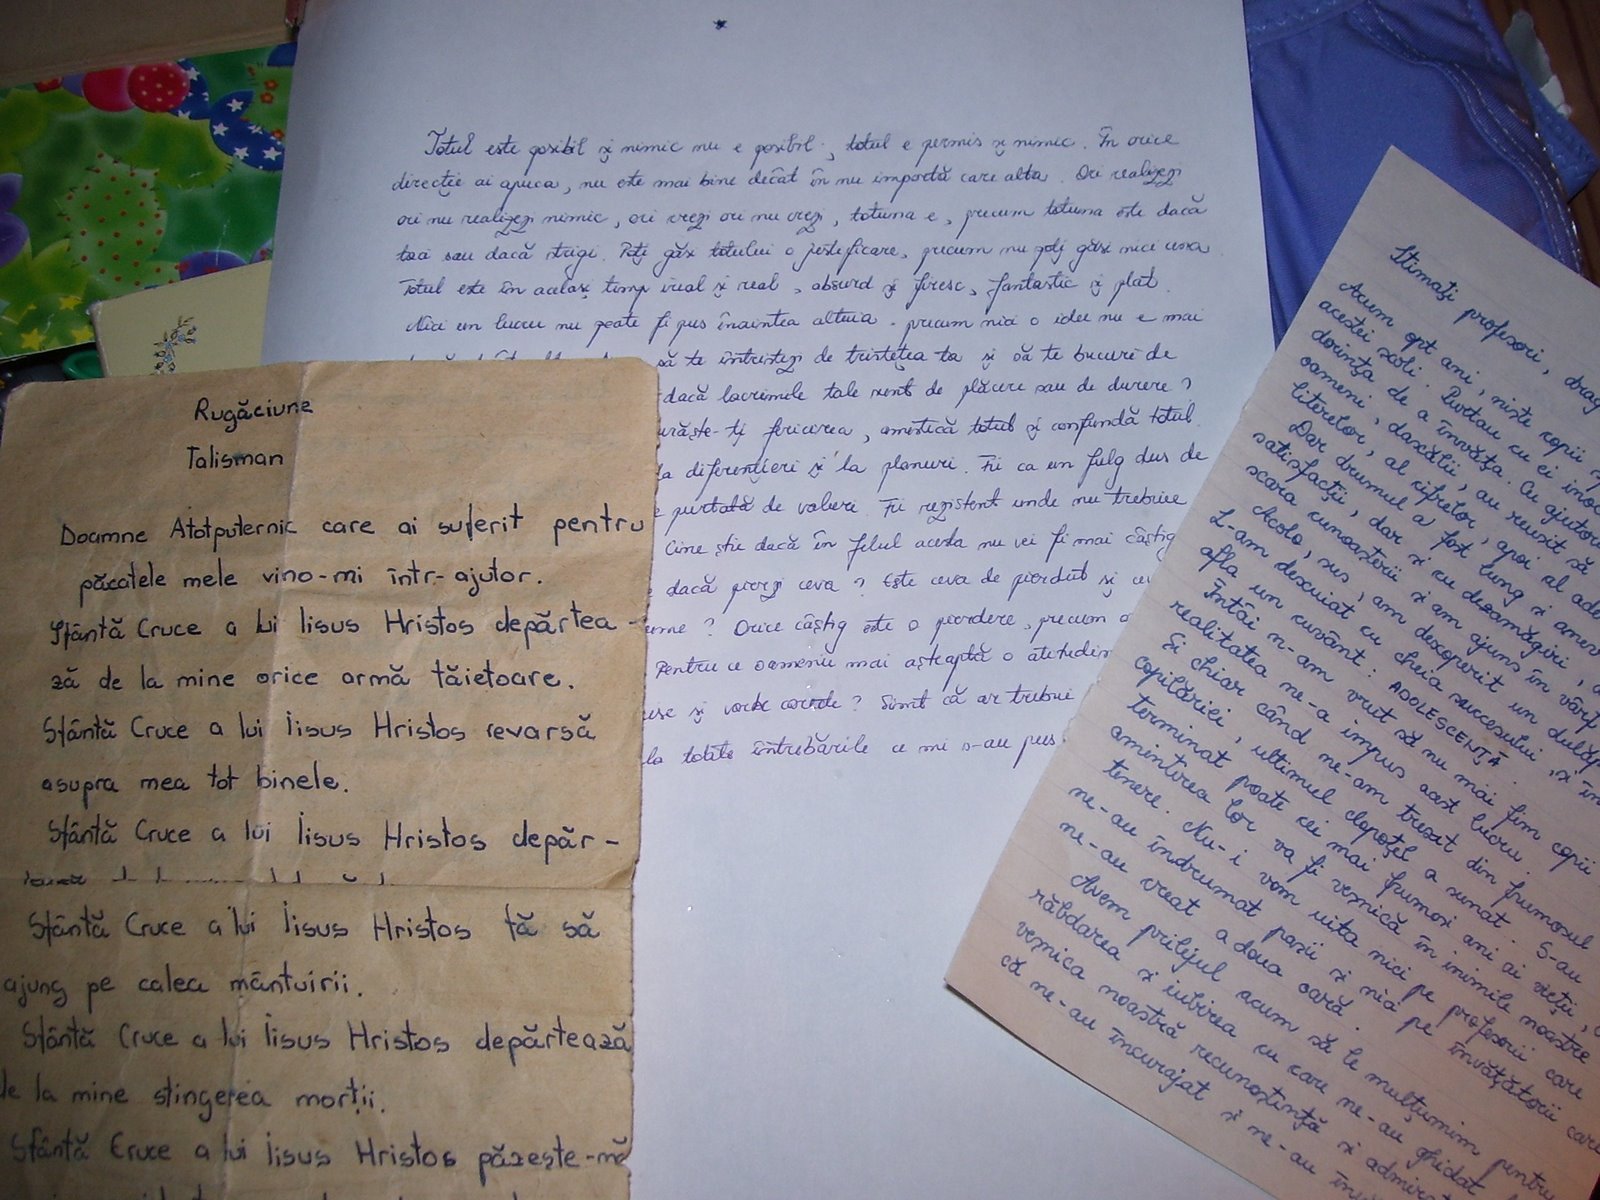 Totul este posibil și nimic nu e posibil, totul e permis și nimic. În orice
direcție ai apuca, nu este mai bine decât în nu importă care alta. Ori realizezi
ori nu realizezi nimic, ori crezi ori nu crezi, totuna e, precum totuna este dacă
taci sau dacă strigi. Poți găsi totului o justificare, precum nu poți găsi nici una.
Totul este în același timp ireal și real, absurd și firesc, fantastic și plat.
Nici un lucru nu poate fi pus înaintea altuia, precum nici o idee nu e mai
să te întristezi de tristețea ta și să te bucuri de
dacă lacrimele tale sunt de plăcere sau de durere?
fericirea, amestică totul și confundă totul.
la diferențieri și la planuri. Fii ca un fulg dus de
purtată de valuri. Fii rezistent unde nu trebuie
Cine știe dacă în felul acesta nu vei fi mai câștig
dacă pierzi ceva? Este ceva de pierdut și ce
? Orice câștig este o pierdere, precum o
Pentru ce oamenii mai așteaptă o
și ? Simt că ar trebui
la toate întrebările ce mi s-au pus
Rugăciune
Talisman
Doamne Atotputernic care ai suferit pentru
păcatele mele vino-mi într-ajutor.
Sfântă Cruce a lui Iisus Hristos depărtea-
ză de la mine orice armă tăietoare.
Sfântă Cruce a lui Iisus Hristos revarsă
asupra mea tot binele.
Sfântă Cruce a lui Iisus Hristos depăr-
Sfântă Cruce a lui Iisus Hristos fă să
ajung pe calea mântuirii.
Sfântă Cruce a lui Iisus Hristos depărtează
de la mine stingerea morții.
Sfântă Cruce a lui Iisus Hristos păzește-mă
Stimați profesori, drag
Acum opt ani, niște copii
acestei școli. Purtau cu ei inoc
dorința de a învăța. Cu ajutoru
oameni, dascălii, au reușit să
literelor, al cifrelor, apoi al ado
Dar drumul a fost lung și anev
satisfacții, dar și cu dezamăgiri,
scara cunoașterii și am ajuns în vârf
Acolo, sus, am descoperit un dulăp
L-am descuiat cu cheia succesului, și în
afla un cuvânt: ADOLESCENȚĂ.
Întâi n-am vrut să nu mai fim copii
realitatea ne-a impus acest lucru.
Și chiar când ne-am trezit din frumosul
copilăriei, ultimul clopoțel a sunat. S-au
terminat poate cei mai frumoși ani ai vieții,
amintirea lor va fi veșnică în inimile noastre
tinere. Nu-i vom uita nici pe profesorii care
ne-au îndrumat pașii și nici pe învățătorii care
ne-au creat a doua oară.
Avem prilejul acum să le mulțumim pentru
răbdarea și iubirea cu care ne-au ghidat
veșnica noastră recunoștință și admira
că ne-au încurajat și ne-au